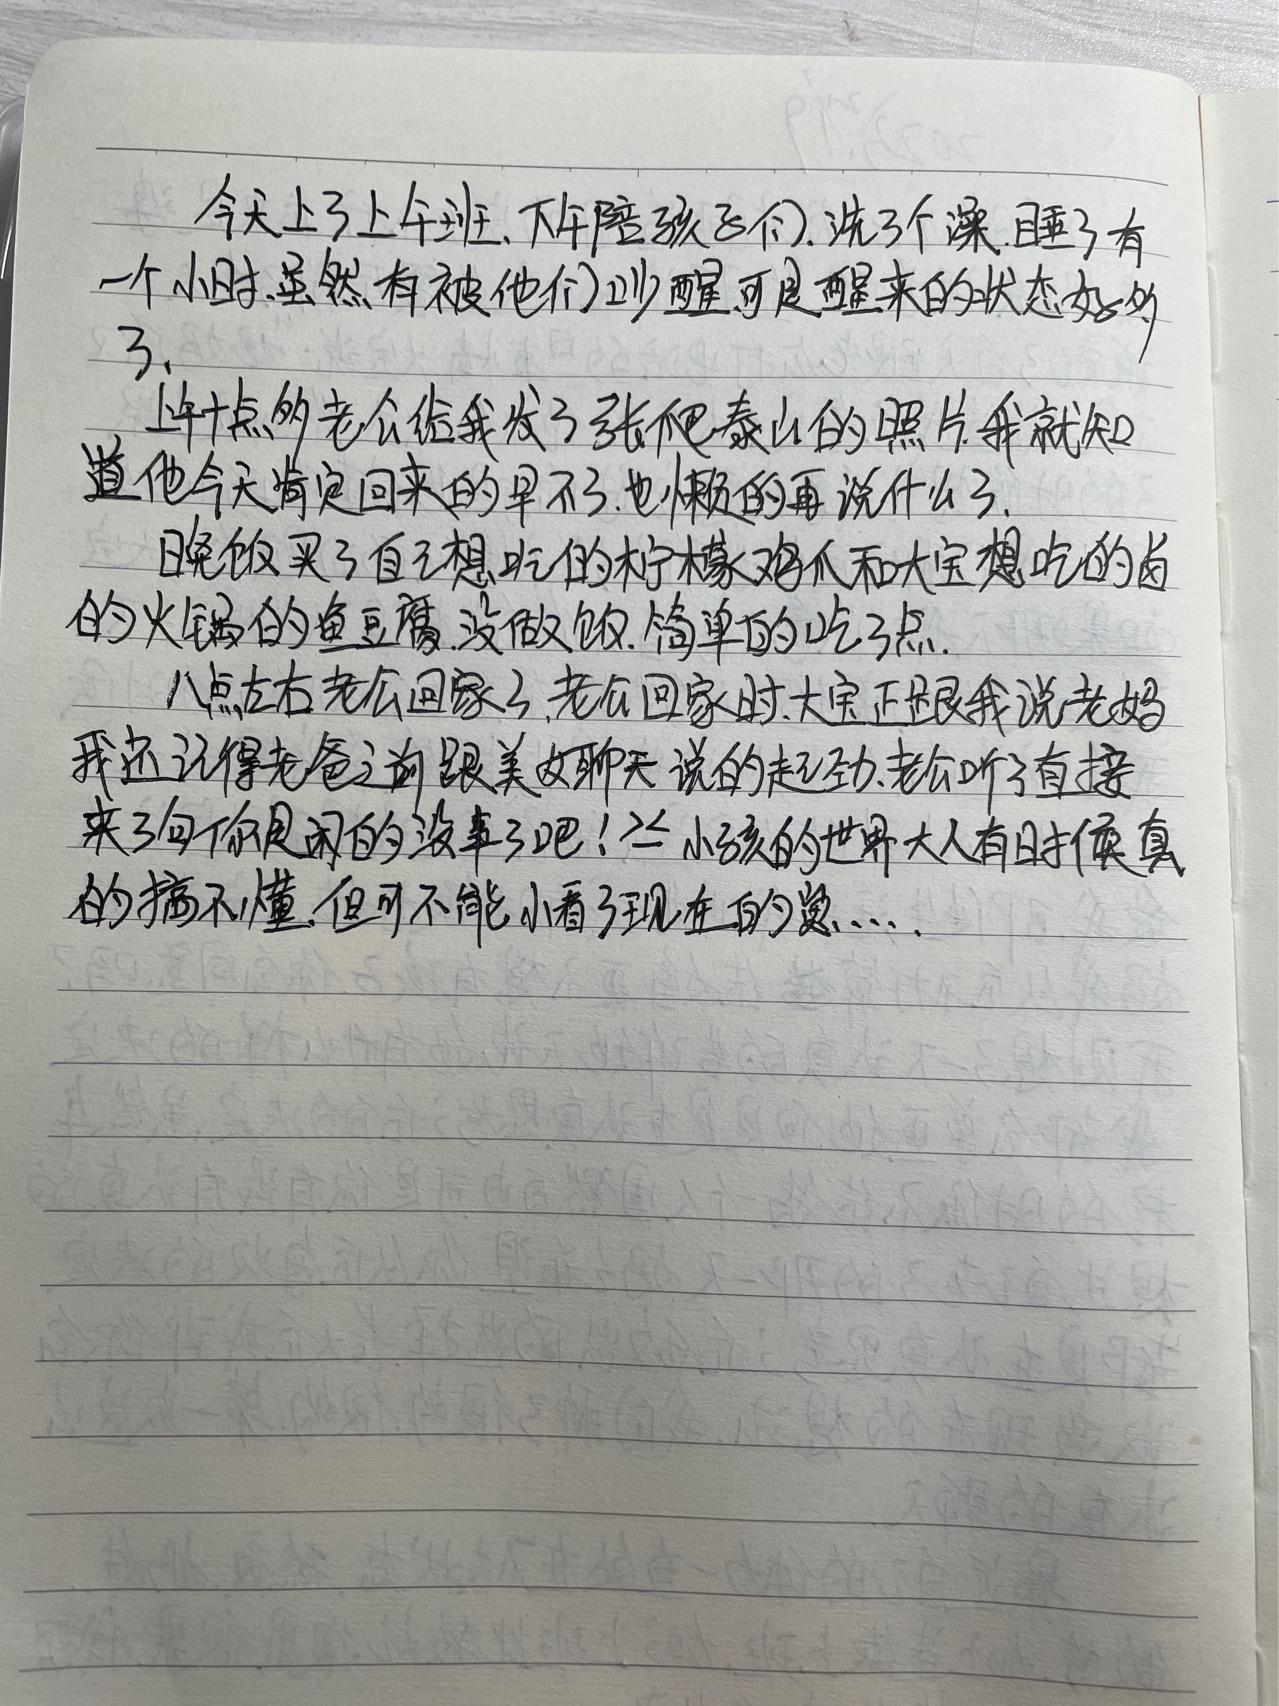 今天上了上午班、下午陪孩子们、洗了个澡、睡了有
一个小时、虽然有被他们吵醒、可是醒来的状态好多
了、
上午十点多老公给我发了张爬泰山的照片、我就知
道他今天肯定回来的早不了、也懒的再说什么了、
晚饭买了自己想吃的柠檬鸡爪和大宝想吃的卤
的火锅的鱼豆腐、没做饭、简单的吃了点、
八点左右老公回家了、老公回家时、大宝正跟我说老妈
我还记得老爸之前跟美女聊天说的起劲、老公听了直接
来了句你是闲的没事了吧！小孩的世界大人有时候真
的搞不懂、但可不能小看了现在的